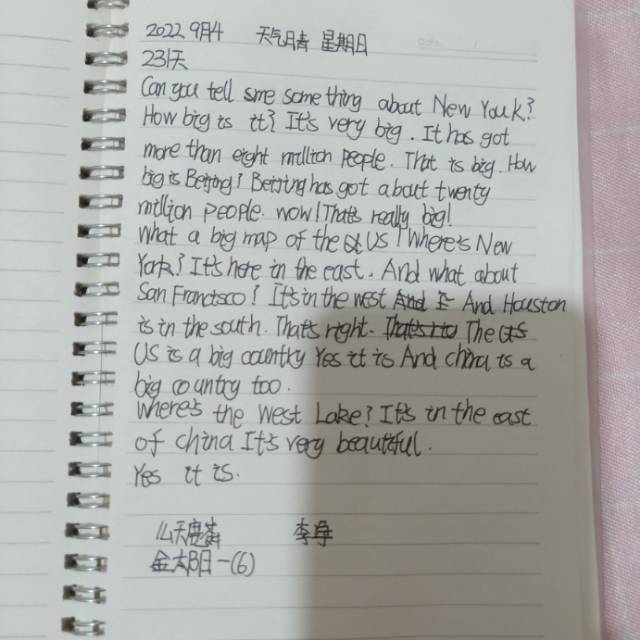 2022 9月4 天气晴 星期日
Date /
231天
Can you tell sme something about New Youk?
How big is it? It's very big. It has got
more than eight million people. That is big. How
big is Beijing? Beijing has got about twenty
million people. wow! That's really big!
What a big map of the US! Where's New
York? It's here in the east. And what about
San Francisco? It's in the west And Houston
is in the south. That's right. The
US is a big country Yes it is And china is a
big country too.
Where's the West Lake? It's in the east
of china It's very beautiful.
Yes it is.
(6)